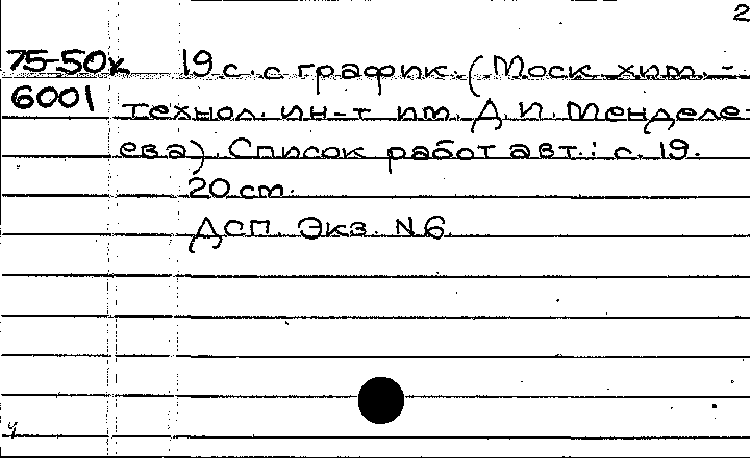 2
75-50к 19 с. с график. (Моск хим.-
6001 технол. ин-т им. Д. И. Менделе-
ева). Список работ авт.: с. 19.
20 см.
ДСП. Экз. N6.